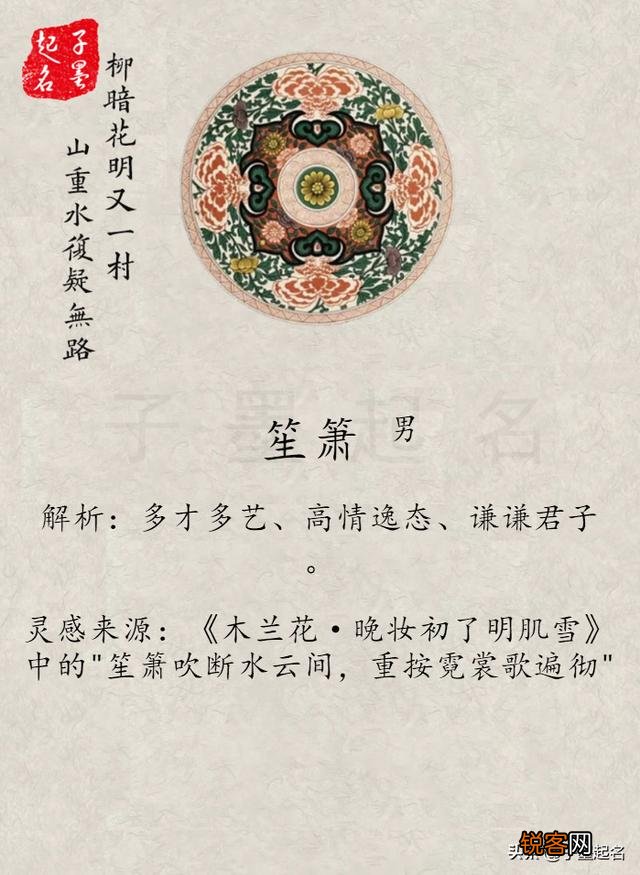 子墨
起名
柳暗花明又一村
山重水復疑無路
子墨起名
笙箫 男
解析：多才多艺、高情逸态、谦谦君子
。
灵感来源：《木兰花·晚妆初了明肌雪》
中的"笙箫吹断水云间，重按霓裳歌遍彻"
锐客网
头条 @子墨起名